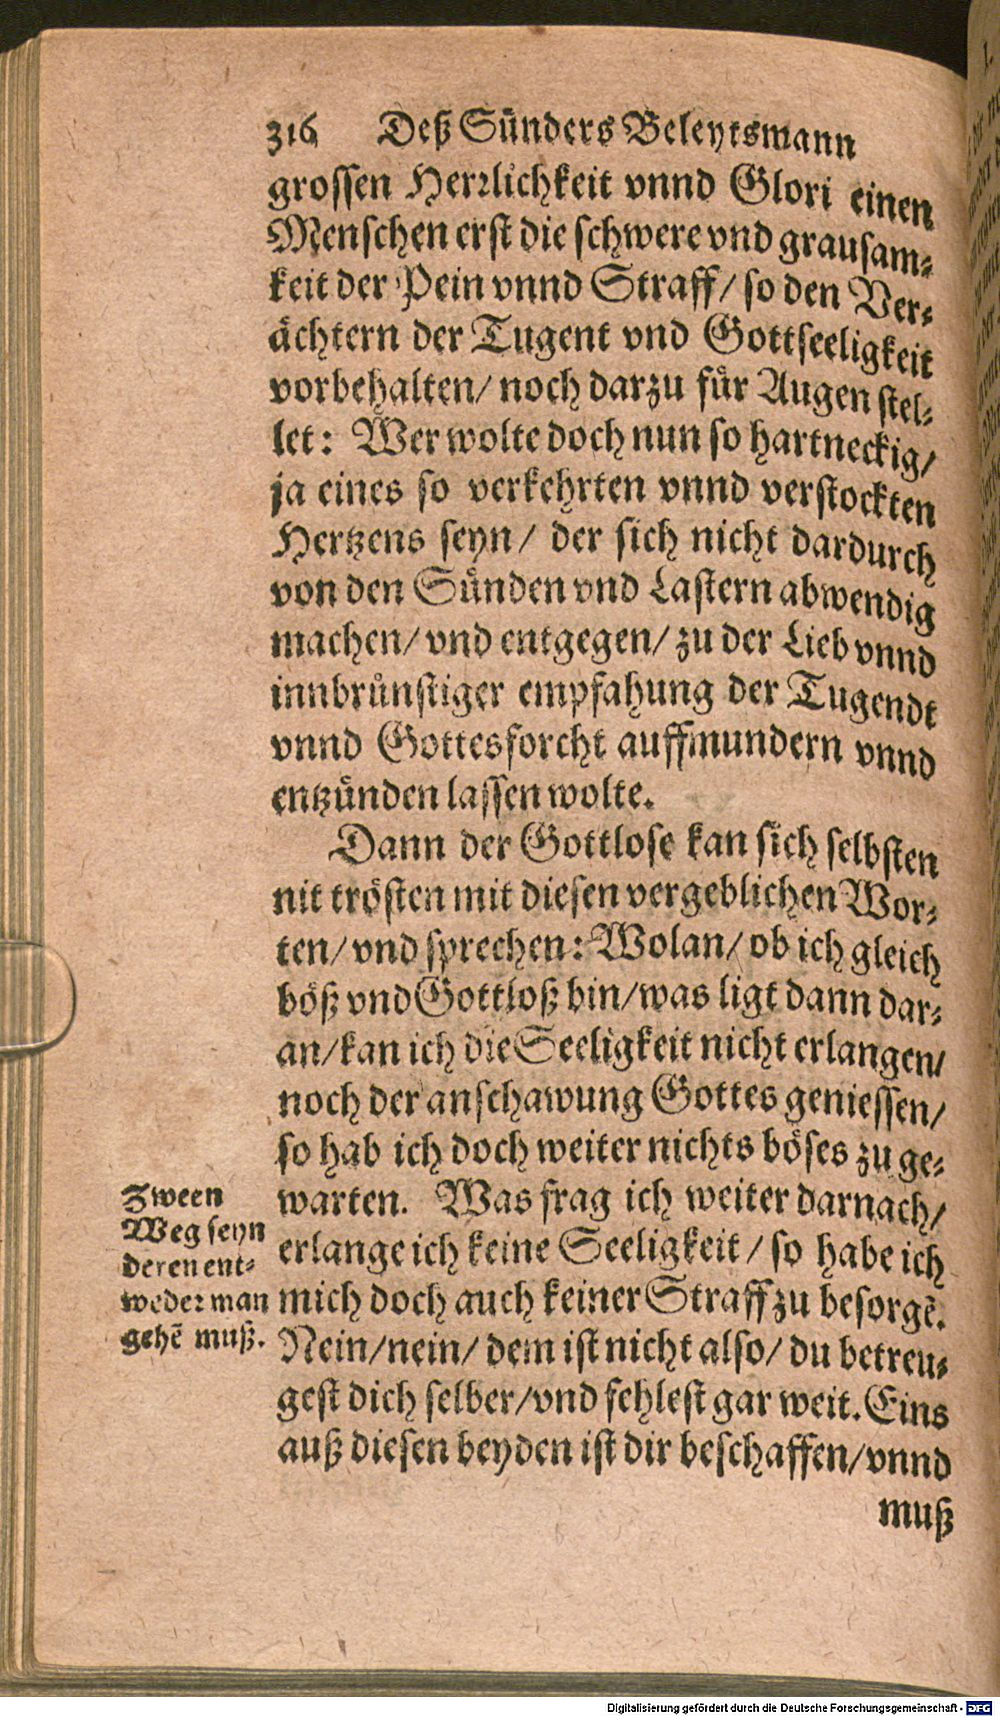 316 Deß Sünders Beleytsmann
grossen Herrlichkeit vnnd Glori einen
Menschen erst die schwere vnd grausam-
keit der Pein vnnd Straff/ so den Ver-
ächtern der Tugent vnd Gottseeligkeit
vorbehalten/ noch darzu für Augen stel-
let: Wer wolte doch nun so hartneckig/
ja eines so verkehrten vnnd verstockten
Hertzens seyn/ der sich nicht dardurch
von den Sünden vnd Lastern abwendig
machen/ vnd entgegen/ zu der Lieb vnnd
innbrünstiger empfahung der Tugendt
vnnd Gottesforcht auffmundern vnnd
entzünden lassen wolte.
Dann der Gottlose kan sich selbsten
nit trösten mit diesen vergeblichen Wor-
ten/ vnd sprechen: Wolan/ ob ich gleich
böß vnd Gottloß bin/ was ligt dann dar-
an/ kan ich die Seeligkeit nicht erlangen/
noch der anschawung Gottes geniessen/
so hab ich doch weiter nichts böses zu ge-
warten. Was frag ich weiter darnach/
erlange ich keine Seeligkeit/ so habe ich
mich doch auch keiner Straff zu besorgẽ.
Nein/ nein/ dem ist nicht also/ du betreu-
gest dich selber/ vnd fehlest gar weit. Eins
auß diesen beyden ist dir beschaffen/ vnnd
muß
Zween
Weg seyn
deren ent-
weder man
gehẽ muß.
Digitalisierung gefördert durch die Deutsche Forschungsgemeinschaft - DFG